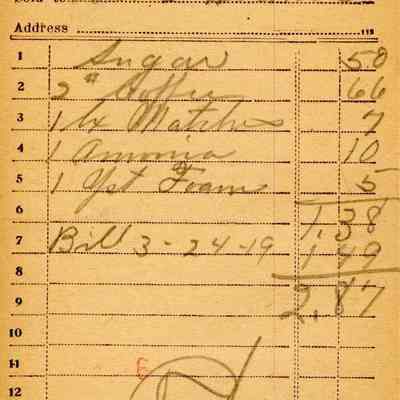 Sold to
Address
1 Sugar 50
2 2# Coffee 66
3 1 bx Matches 7
4 1 Amonia 10
5 1 Yst Foam 5
6 1.38
7 Bill 3-24-19 1 49
8
9 2.87
10
11
12